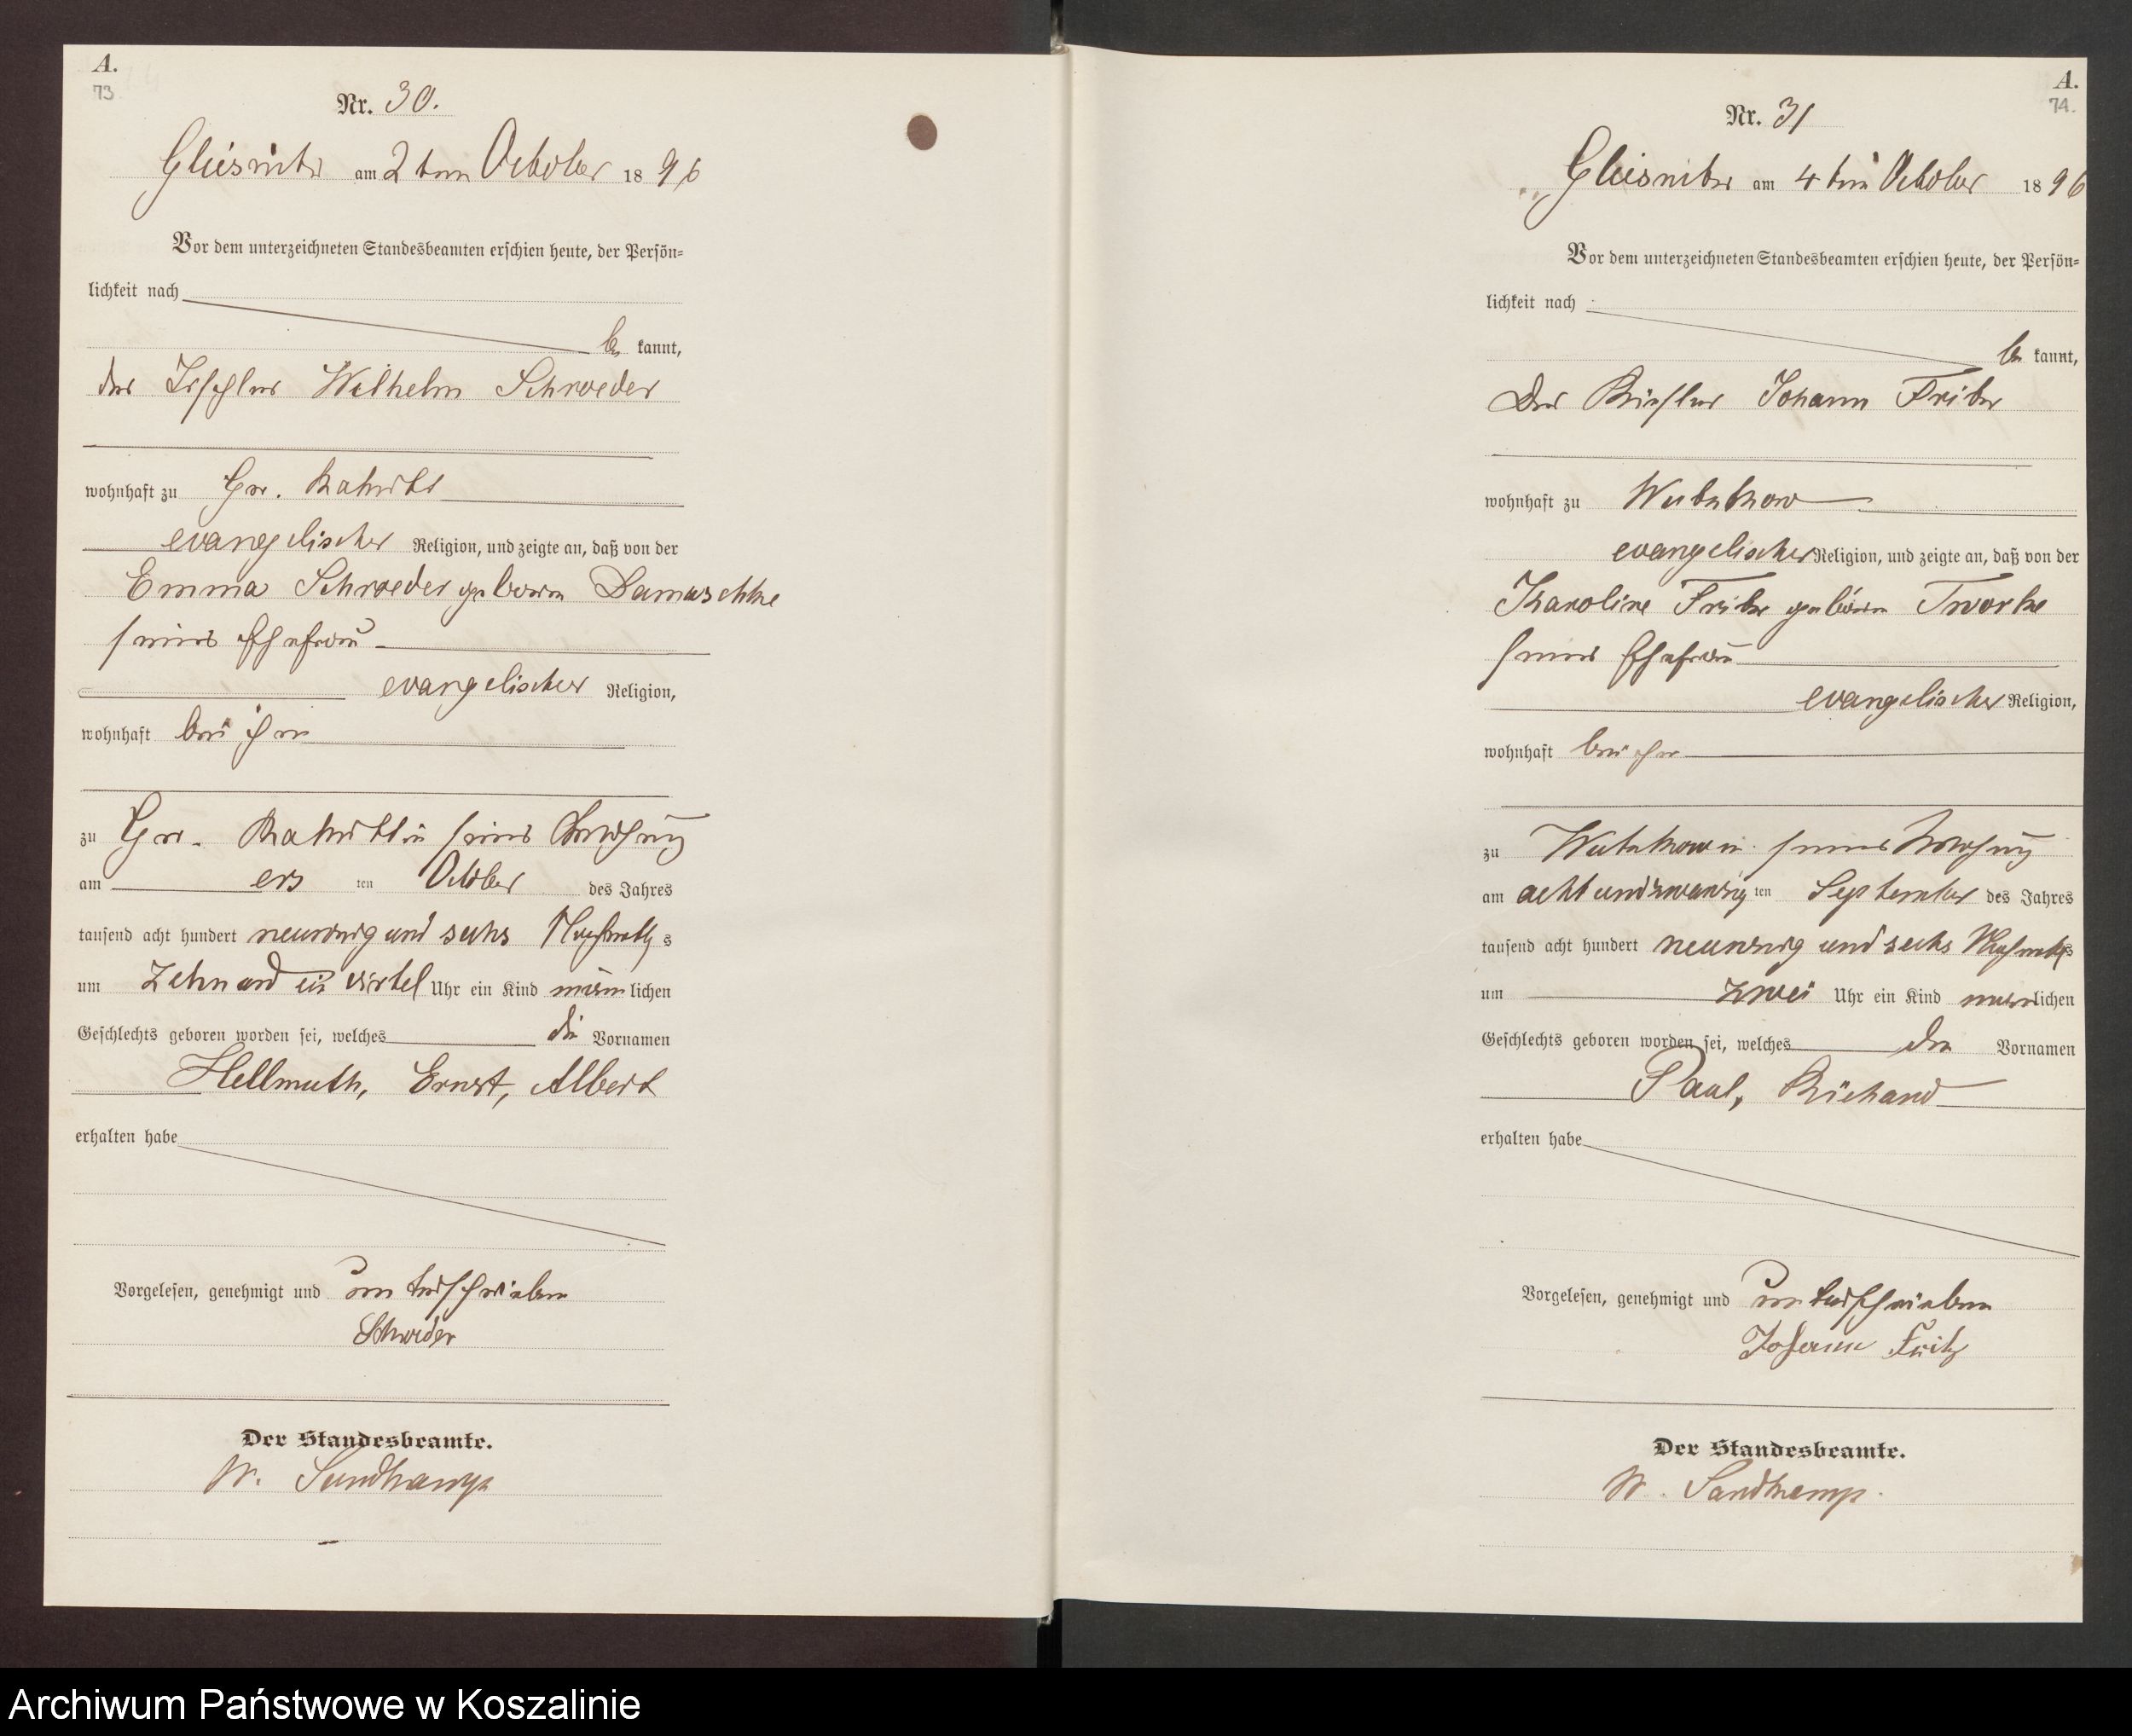 A.
73
Nr. 30.
Gliesnitz am 2ten October 1896
Vor dem unterzeichneten Standesbeamten erschien heute, der Persön=
lichkeit nach
be kannt,
der Tischler Wilhelm Schroeder
wohnhaft zu Gr. Rakitt
evangelischer Religion, und zeigte an, daß von der
Emma Schroeder geboren Damaschke
seiner Ehefrau
evangelischer Religion,
wohnhaft bei ihm
zu Gr. Rakitt in seiner Wohnung
am ers ten October des Jahres
tausend acht hundert neunzig und sechs Nachmittags
um Zehn und ein viertel Uhr ein Kind männlichen
Geschlechts geboren worden sei, welches die Vornamen
Hellmuth, Ernst, Albert
erhalten habe
Vorgelesen, genehmigt und unterschrieben
Schroeder
Der Standesbeamte.
W. Sandkamp
A.
74.
Nr. 31
Gliesnitz am 4ten October 1896
Vor dem unterzeichneten Standesbeamten erschien heute, der Persön=
lichkeit nach
be kannt,
Der Johann Fritz
wohnhaft zu Wutzkow
evangelischer Religion, und zeigte an, daß von der
Karoline Fritz geboren Tworke
seiner Ehefrau
evangelischer Religion,
wohnhaft bei ihm
zu Wutzkow in seiner Wohnung
am acht und zwanzig ten September des Jahres
tausend acht hundert neunzig und sechs Nachmittags
um zwei Uhr ein Kind männlichen
Geschlechts geboren worden sei, welches den Vornamen
Paul, Richard
erhalten habe
Vorgelesen, genehmigt und unterschrieben
Johann Fritz
Der Standesbeamte.
W. Sandkamp.
Archiwum Państwowe w Koszalinie